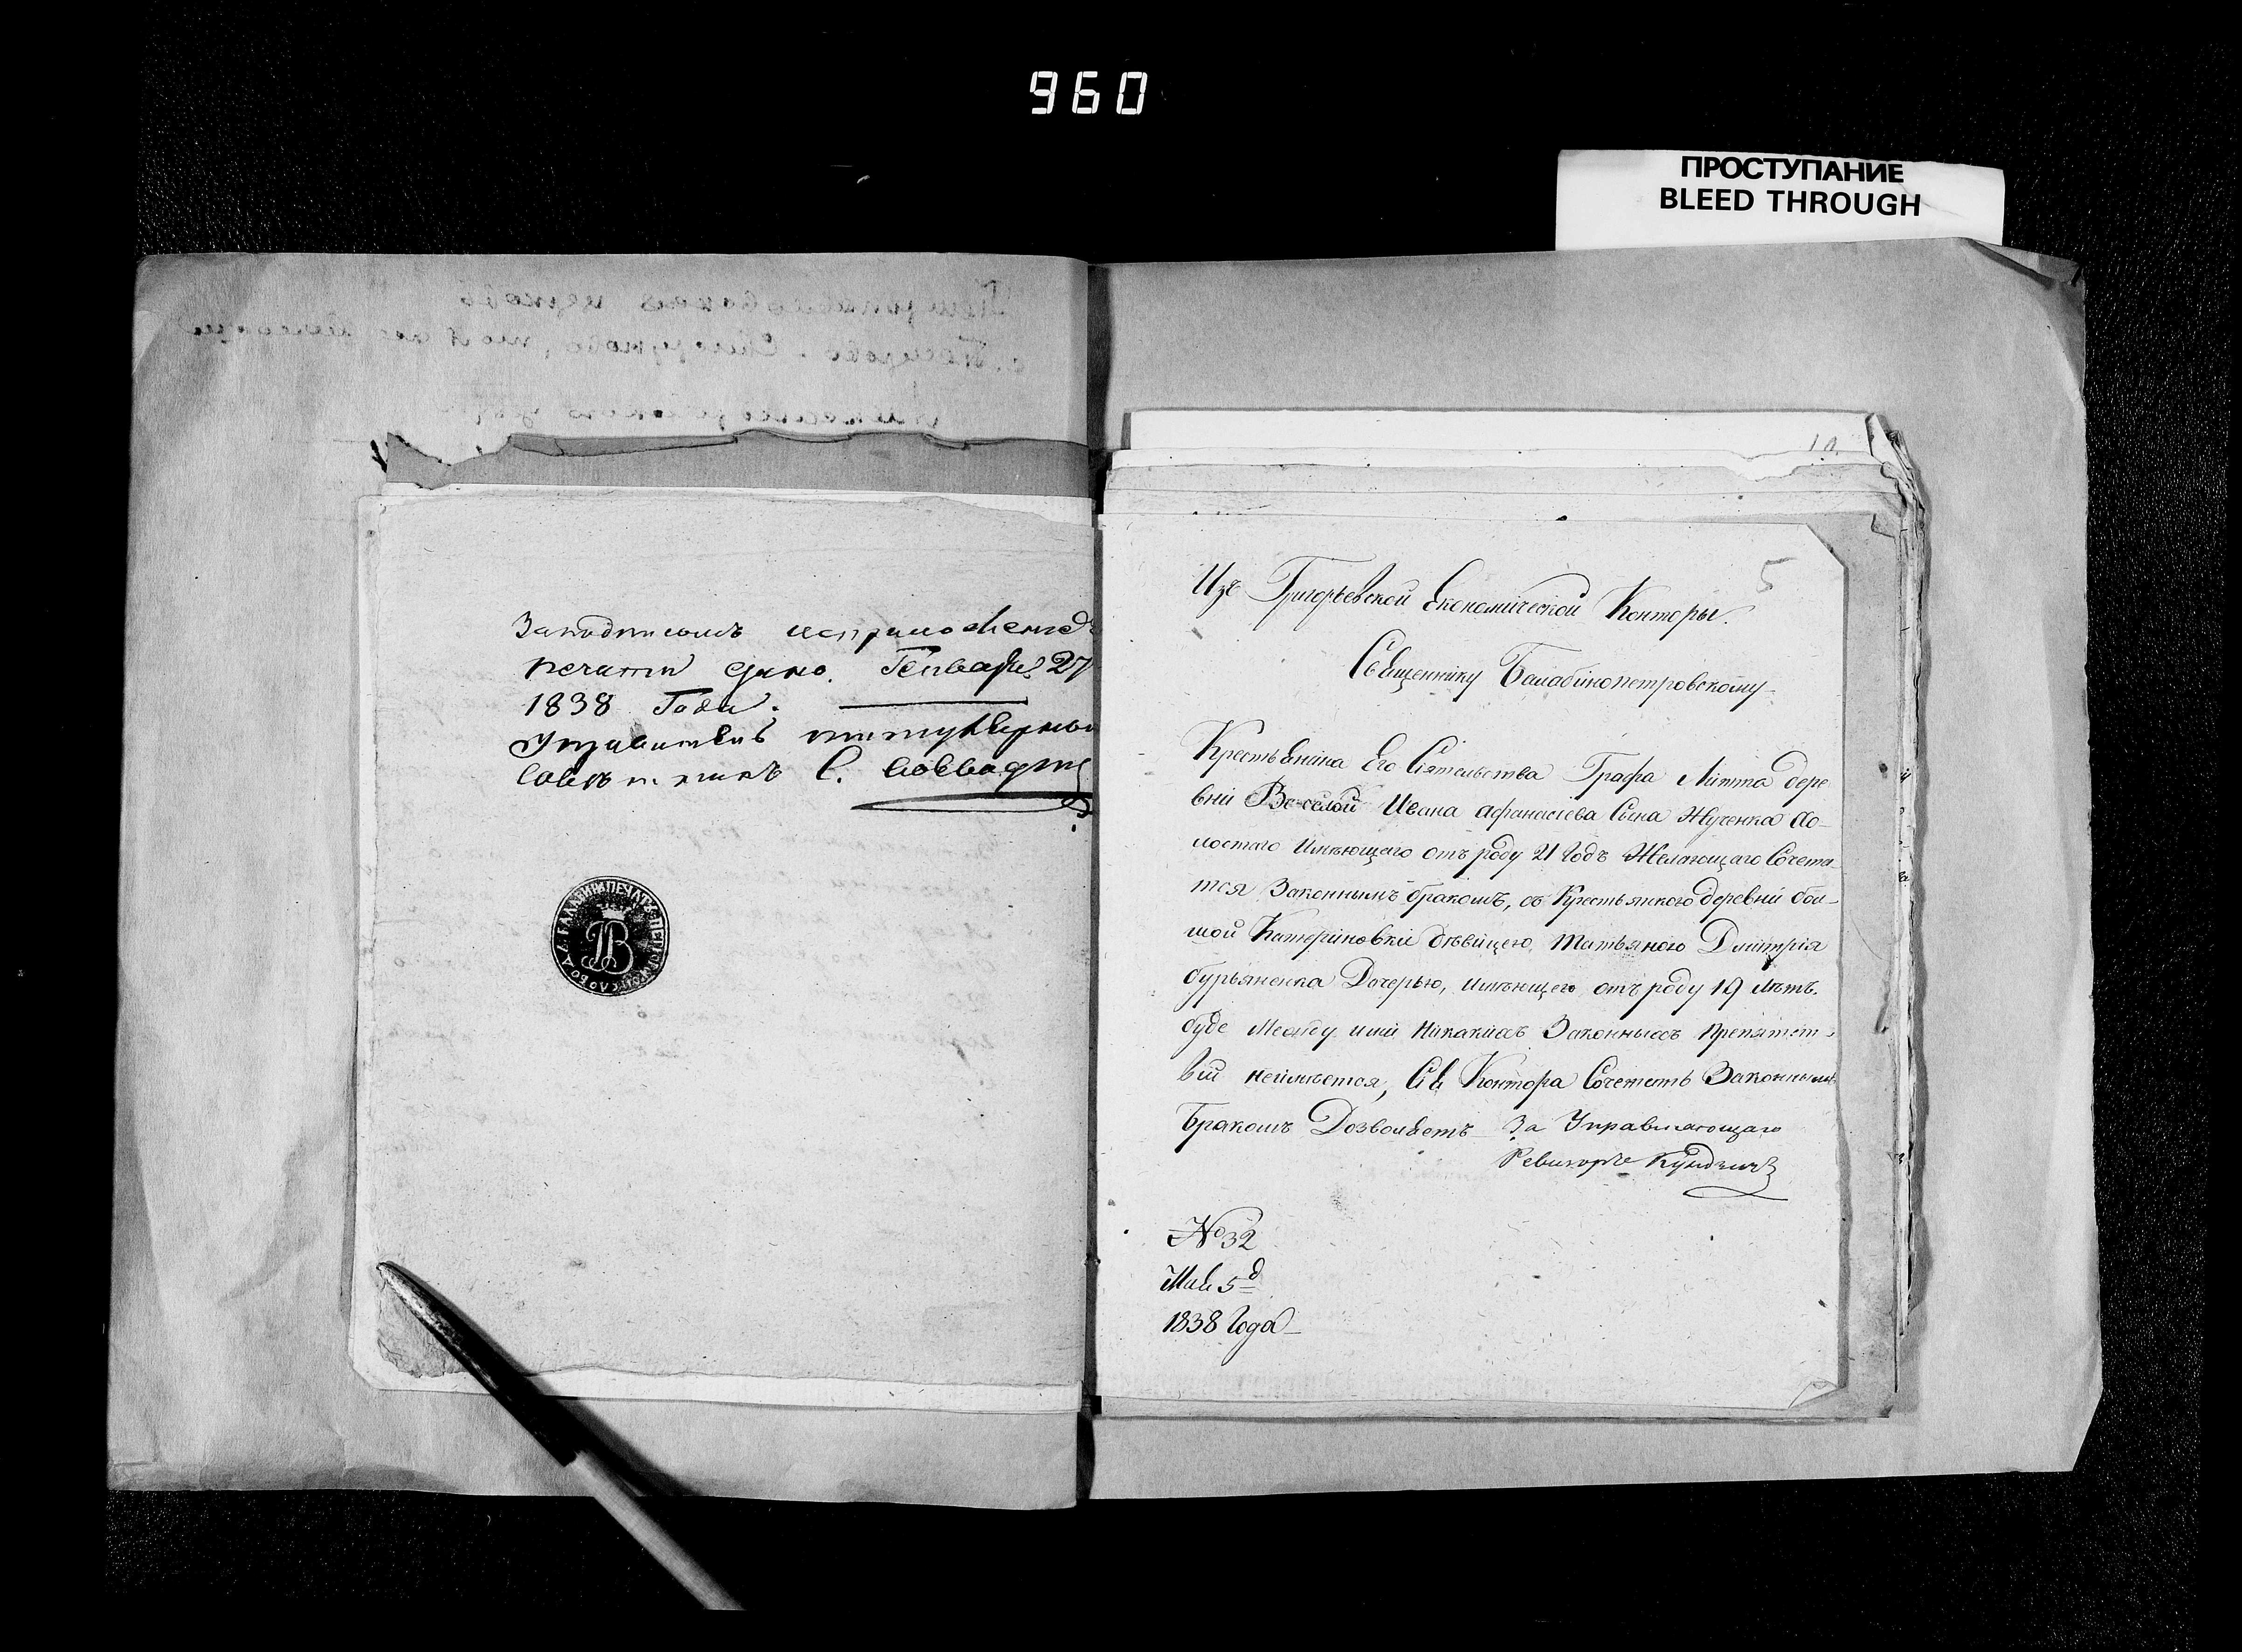 960
ПРОСТУПАНИЕ
BLEED THROUGH
За подписомъ исприложеніемъ
печати дано. Генваря 27
1838 Года.
титулярный
Советникъ С.
10
5
Изъ Григорьевской Економической Конторы.
Священнику Балабинопетровскому
Крестьянина Его Сіятельства Графа Литта дере
вни Веселой Ивана Афанасіева Сына Жученка Хо-
лостаго Имеющаго отъ роду 21 Годъ Желающаго Сочета-
тся Законнымъ бракомъ, съ Крестьянкою деревни бол-
шой Катериновки девицею Татьяною Дмитрія
бурьяненка Дочерью, имеющею отъ роду 19 летъ.
буде Между ими Никакихъ Законныхъ Препятст
вій неимется, Сія Контора Сочетать Законнымъ
Бракомъ Дозволяетъ За Управляющаго
Ревизоръ
№ 32
Мая 5д
1838 Года